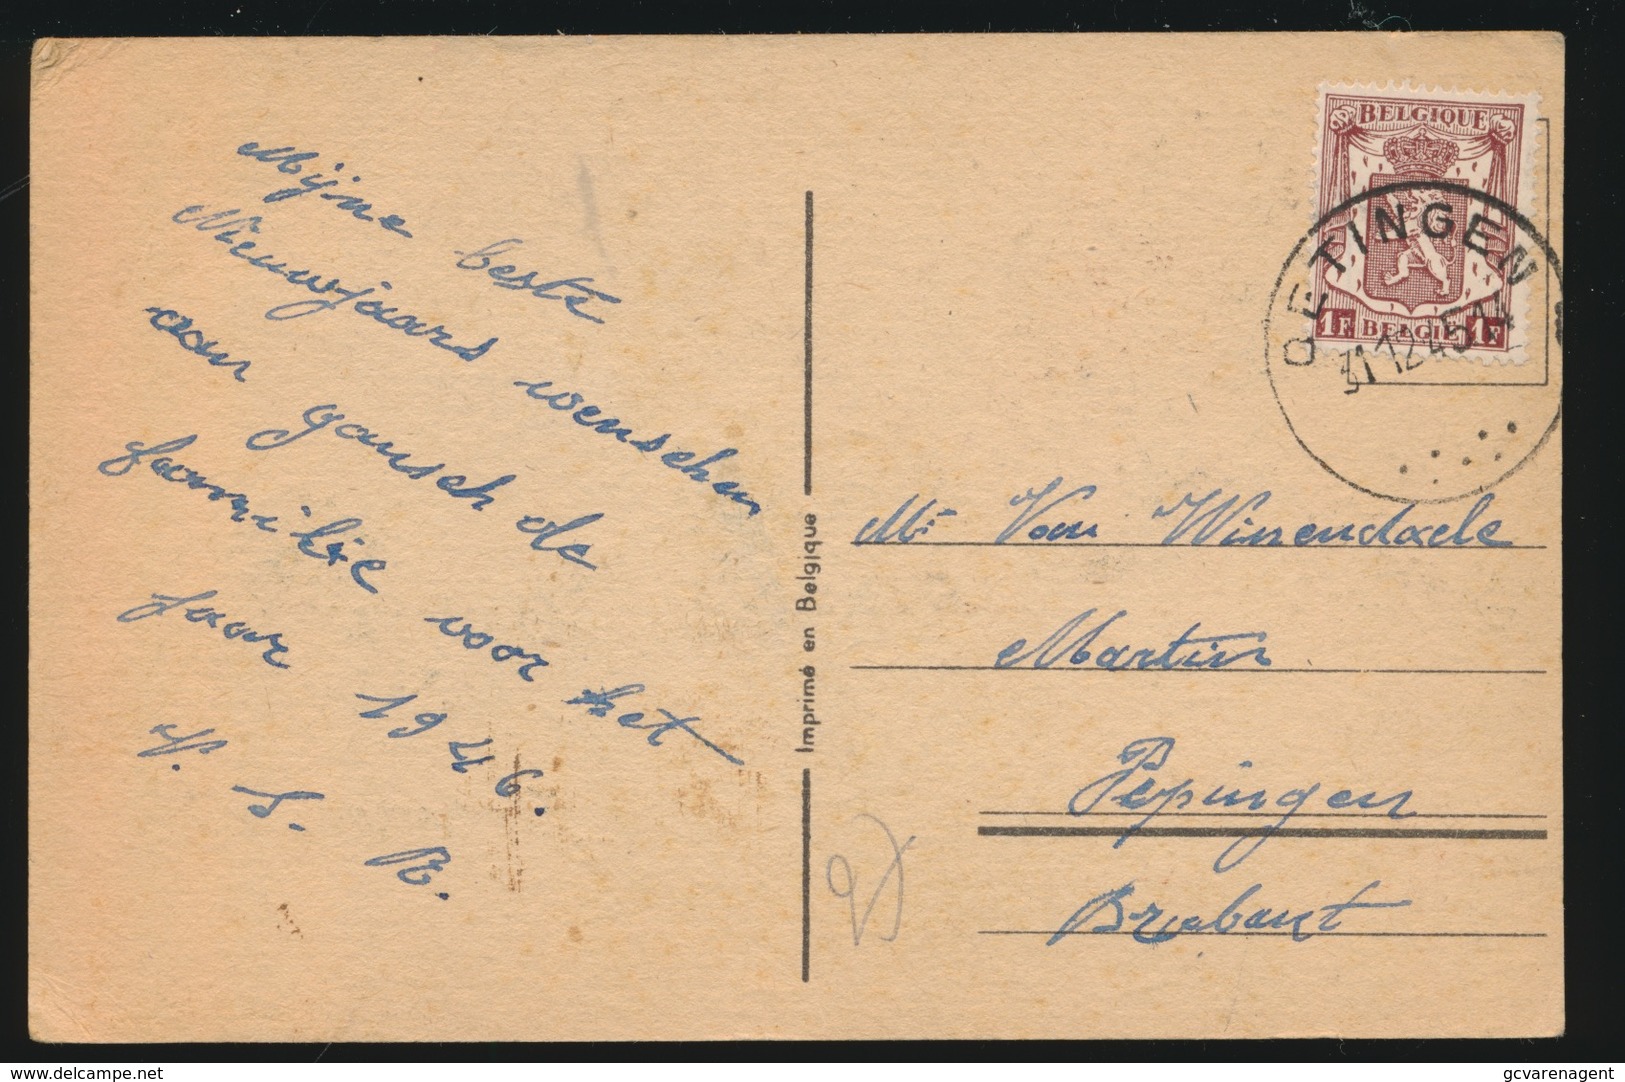 Mijne beste
Nieuwjaars wenschen
aan gansch de
familie voor het
jaar 1946.
V. S. R.
Imprimé en Belgique
BELGIQUE
1F BELGIE 1F
OETINGEN
31 12 45 14
Mr Van Winnendaele
Martin
Pepingen
Brabant
delcampe.net
gcvarenagent